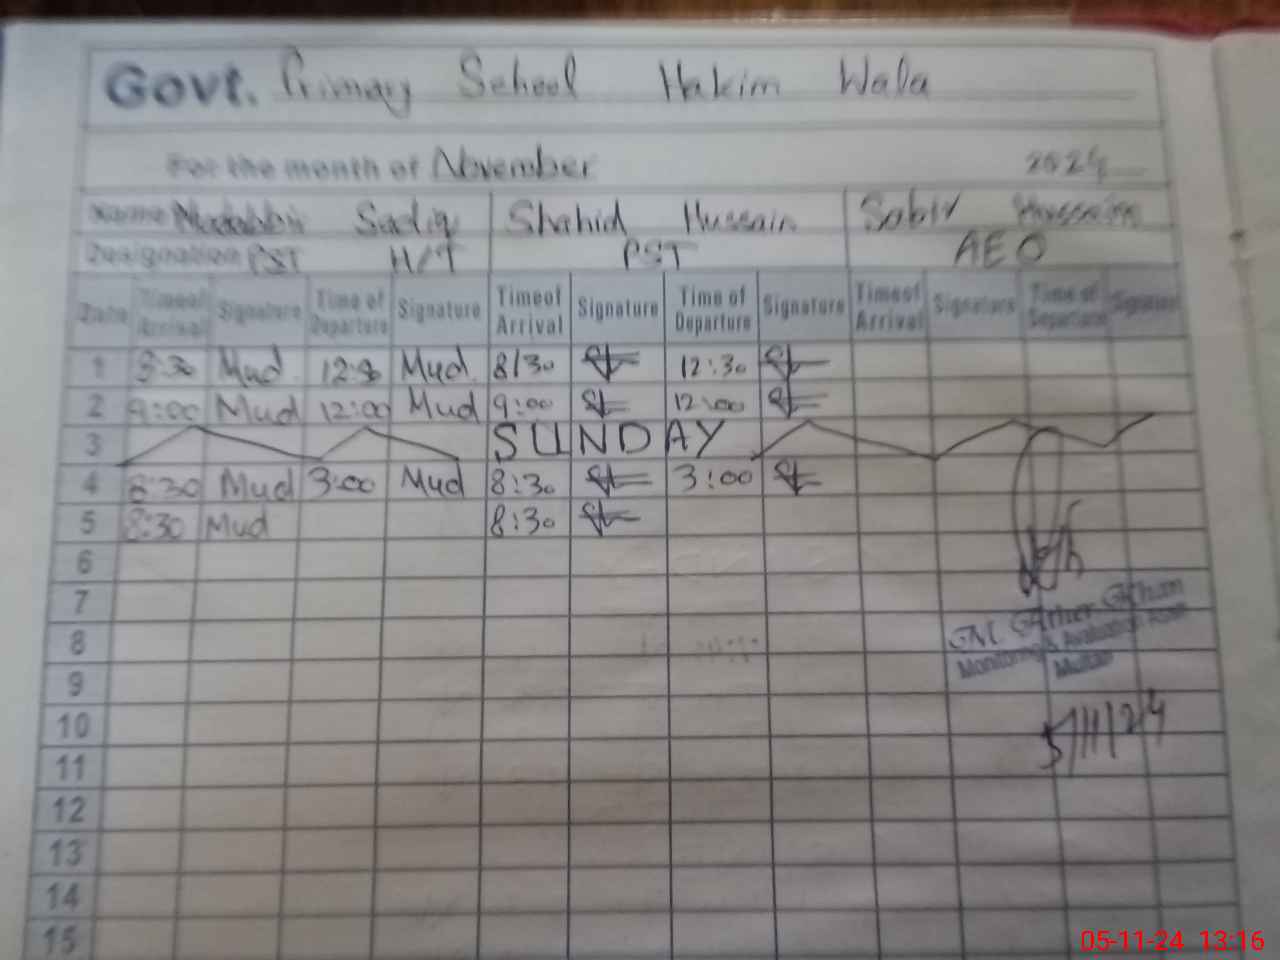 Govt. Primary School Hakim Wala
For the month of November 2024
Name Sadiq Shahid Hussain Sabir Hussain
Designation PST H/T PST AEO
Date Timeof Arrival Signature Time of Departure Signature Timeof Arrival Signature Time of Departure Signature Timeof Arrival Signature Time of Departure Signature
1 8:30 Mud. 12:30 Mud. 8/30 12:30
2 9:00 Mud 12:00 Mud 9:00 12:00
3 SUNDAY
4 8:30 Mud 3:00 Mud 8:30 3:00
5 8:30 Mud 8:30
6
7
8
Monitoring & Evaluation
Multan
9
10 5/11/24
11
12
13
14
15
05-11-24 13:16